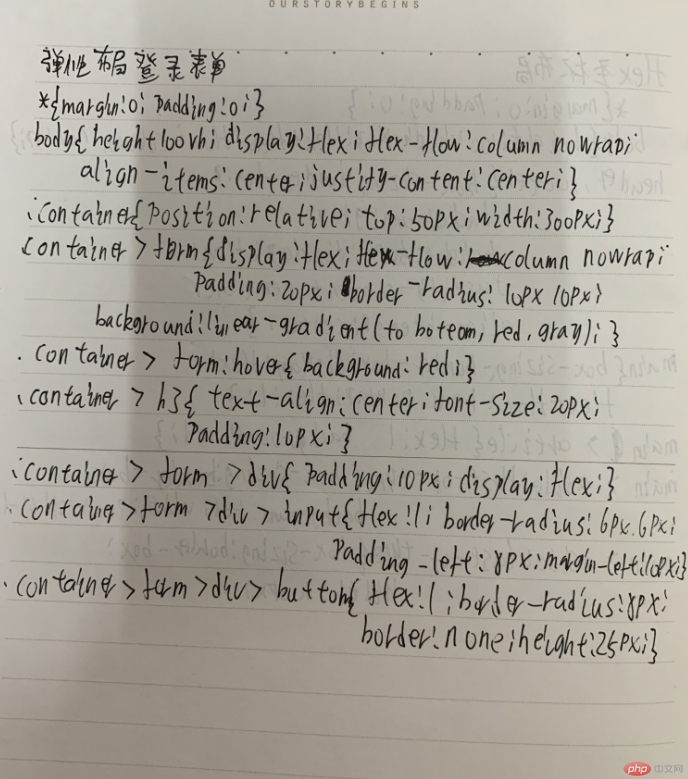 OURSTORYBEGINS
弹性布局登录表单
*{margin:0; padding:0;}
body{height100vh; display:flex; flex-flow:column nowrap;
align-items:center; justity-content:center;}
.container{position:relative; top:50px; width:300px;}
.container>form{display:flex; flex flow:column nowrap;
padding:20px; border-radius:10px 10px;
background:linear-gradient(to boteom, red, gray); }
.container> form:hover{background:red;}
.container > h3{ text-align:center; font-size:20px;
Padding:10px;}
.container> form >div{ padding:10px; display:flex;}
.container>form >div> input{flex:1; border-radius:6px.6px;
Padding-left:8px; margin-left:10px;}
.container>form>div> button{ flex:1; border-radius:8px;
border:none; height:25px;}
php 中文网